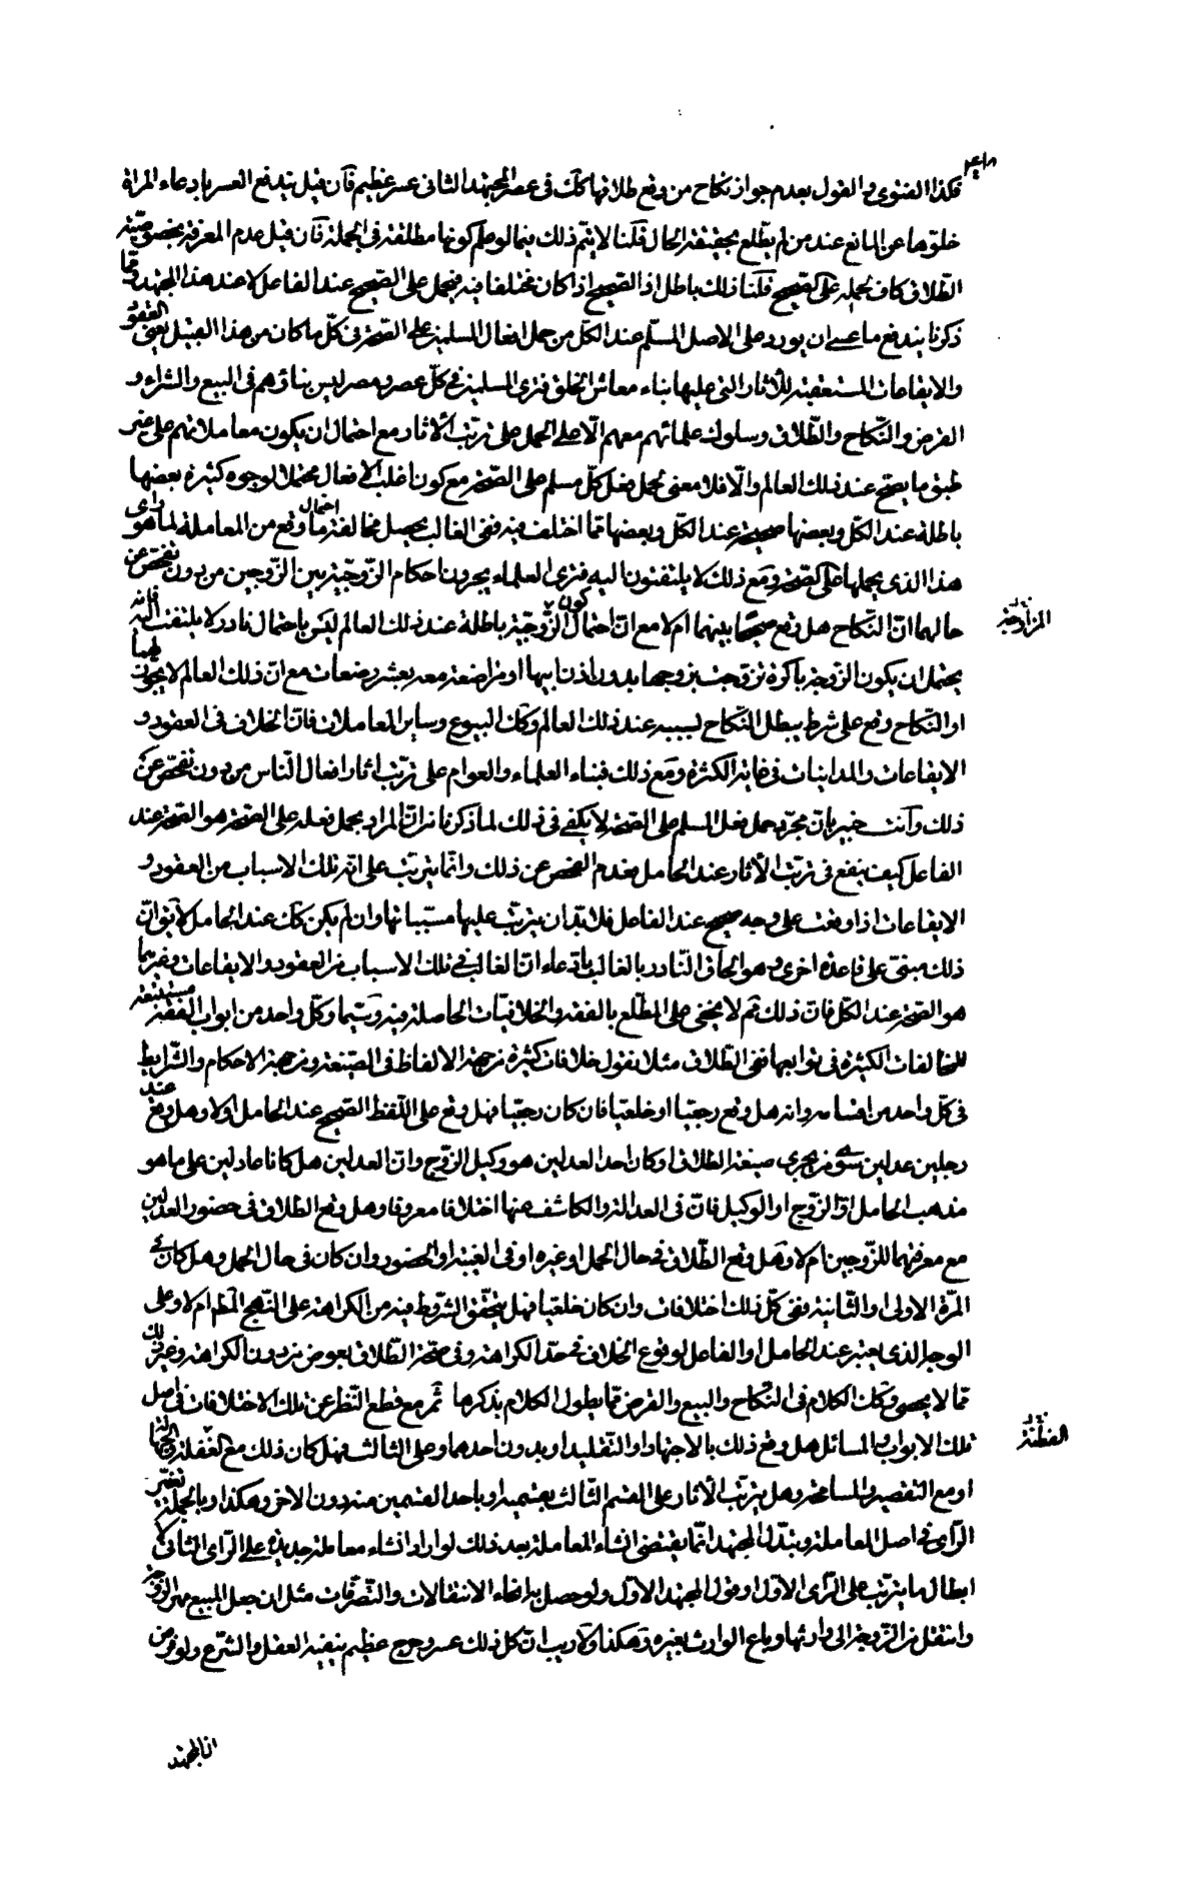 فكذا الفتوى والقول بعدم جواز نكاح من وقع طلاقها كك فى عصر المجتهد الثانى عسر عظيم فان قيل يندفع العسر بادعاء المراة
خلوّها عن المانع عند من لم يطّلع بحقيقة الحال قلنا لا يتمّ ذلك فيما لو علم كونها مطلقة فى الجملة فان قيل عدم المعرفة بخصوص صيغة
الطّلاق كاف بحمله على الصّحيح قلنا ذلك باطل اذ الصّحيح اذا كان مختلفا فيه فيحمل على الصّحيح عند الفاعل لا عند هذا المجتهد وبما
ذكرنا يندفع ما عسى ان يورد على الاصل المسلّم عند الكلّ من حمل افعال المسلمين على الصّحة فى كلّ ما كان من هذا القبيل يعنى العقود
والايقاعات المستعقبة للآثار التى عليها بناء معاش الخلق فترى المسلمين فى كلّ عصر ومصر ليس بناؤهم فى البيع والشراء و
القرض والنّكاح والطّلاق وسلوك علمائهم معهم الّا على الحمل على ترتّب الآثار مع احتمال ان يكون معاملاتهم على غير
طبق ما يصحّ عند ذلك العالم والّا فلا معنى لحمل فعل كلّ مسلم على الصّحة مع كون اغلب الافعال محتملا لوجوه كثيرة بعضها
باطلة عند الكلّ وبعضها صحيحة عند الكلّ وبعضها مما اختلف فيه ففى الغالب يحصل احتمال مخالفة ما وقع من المعاملة لما هو راى
هذا الذى يحملها على الصّحة ومع ذلك لا يلتفتون اليه فترى العلماء يجرون احكام الزّوجيّة بين الزّوجين من دون تفحّص عن
حالهما انّ النّكاح هل وقع صحيحا بينهما ام لا مع انّ احتمال كون الزّوجيّة باطلة عند ذلك العالم ليس باحتمال نادر لا يلتفت اليه فانّه
المزاوجة
يحتمل ان يكون الزّوجة باكرة تزوّجت بزوجها بدون اذن ابيها او مراضعة معه بعشر رضعات مع انّ ذلك العالم لا يجوّزهما
او النّكاح وقع على شرط يبطل النّكاح لسببه عند ذلك العالم وكك البيوع وساير المعاملات فانّ الخلاف فى العقود و
الايقاعات والمداينات فى غاية الكثرة ومع ذلك فبناء العلماء والعوام على ترتّب اثار افعال النّاس من دون تفحّص عن
ذلك وانت خبير بانّ مجرّد حمل فعل المسلم على الصّحة لا يكفى فى ذلك لما ذكرنا من انّ المراد بحمل فعله على الصّحة هو الصّحة عند
الفاعل كيف ينفع فى ترتّب الآثار عند الحامل فعدم الفحص عن ذلك وانّما يترتّب على انّ تلك الاسباب من العقود و
الايقاعات اذا وقعت على وجه صحيح عند الفاعل فلا بدّ ان يترتّب عليها مسبّباتها وان لم يكن كك عند الحامل لا يقال انّ
ذلك مبنىّ على قاعدة اخرى وهو الحاق النّادر بالغالب بادّعاء انّ الغالب فى تلك الاسباب من العقود والايقاعات وغيرهما
هو الصّحة عند الكلّ فانّ ذلك ممّ لا يخفى على المطّلع بالفقه والخلافيّات الحاصلة فيه وسيّما وكلّ واحد من ابواب الفقه مستتبعة
للمخالفات الكثيرة فى توابعها ففى الطّلاق مثلا نقول خلافات كثيرة من جهة الالفاظ فى الصّيغة ومن جهة الاحكام والشّرايط
فى كلّ واحد من اقسامه وانه هل وقع رجعيّا او خلعيّا فان كان رجعيّا فهل وقع على اللّفظ الصّحيح عند الحامل او لا وهل وقع عند
رجلين عدلين سوى من يجرى صيغة الطلاق او كان احد العدلين هو وكيل الزّوج وانّ العدلين هل كانا عادلين على ما هو
مذهب الحامل او الزّوج او الوكيل فانّ فى العدالة والكاشف عنها اختلافا معروفا وهل وقع الطلاق فى حضور العدلين
مع معرفتهما للزّوجين ام لا وهل وقع الطّلاق فى حال الحمل او غيره او فى الغيبة او الحضور وان كان فى حال الحمل وهل كان فى
المرّة الاولى او الثّانية وفى كلّ ذلك اختلافات وان كان خلعيّا فهل يتحقّق الشّروط فيه من الكراهة على النّهج المعلوم ام لا وعلى
الوجه الذى يعتبر عند الحامل او الفاعل لوقوع الخلاف فى حدّ الكراهة وفى صحّة الطّلاق بعوض من دون الكراهة وغير ذلك
ممّا لا يحصى وكك الكلام فى النّكاح والبيع والقرض ممّا يطول الكلام بذكرها ثمّ مع قطع النّظر عن تلك الاختلافات فى اصل
تلك الابواب والمسائل هل وقع ذلك بالاجتهاد او التّقليد او بدون احدهما وعلى الثّالث فهل كان ذلك مع الغفلة والجهالة
الفطنة
او مع التّقصير والمسامحة وهل يترتّب الآثار على القسم الثّالث بقسميه او باحد القسمين من دون الاخر وهكذا وبالجملة تغيّر
الرّاى فى اصل المعاملة وتبدّل المجتهد انّما يقتضى انشاء المعاملة بعد ذلك لو اراد انشاء معاملة جديدة على الرّاى الثّانى لا
ابطال ما يترتّب على الرّاى الاوّل او قول المجتهد الاوّل ولو حصل به انحاء الانتقالات والتّصرّفات مثل ان جعل المبيع مهر الزّوجة
وانتقل من الزّوجة الى وارثها وباع الوارث بغيره وهكذا ولا ريب انّ كل ذلك عسر وحرج عظيم ينفيه العقل والشّرع ولو فرض
انّ المجتهد